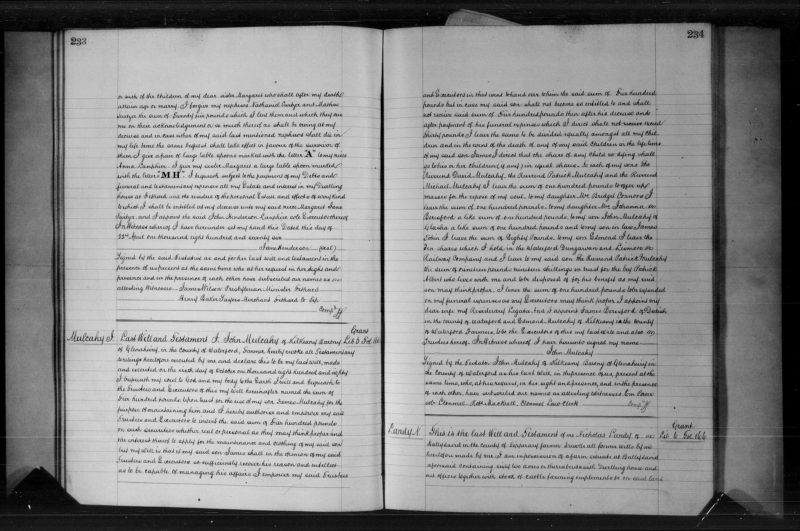 233
or such of the children of my dear sister Margaret who shall after my death
attain age or marry. I forgive my nephews Nathaniel and Mathew
the sum of Twenty five pounds which I lent them and which they owe
me on their acknowledgement or so much thereof as shall be owing at my
decease and in case either of my said last mentioned nephews shall die in
my life time the same bequest shall take effect in favour of the survivor of
them I give a pair of large table spoons marked with the letter "A" to my niece
Anna I give my sister Margaret a large table spoon marked
with the letter "MH" I bequeath subject to the payment of my Debts and
funeral and testamentary expenses all my Estate and interest in my Dwelling
house at Fethard and the residue of the personal Estate and effects of every kind
to which I shall be entitled at my decease unto my said niece Margaret Anna
and I appoint the said John Henderson Executor thereof
In Witness whereof I have hereunder set my hand this Dated this day of
22nd April one thousand eight hundred and seventy six
Jane Henderson (seal)
Signed by the said Testatrix as and for her last will and testament in the
presence of us present at the same time who at her request in her sight and
presence and in the presence of each other have subscribed our names as
attesting Witnesses James Wilson Presbyterian Minister Fethard
Henry Merchant Fethard Co Tip
Comp
Mulcahy J.
Last Will and Testament I, John Mulcahy of Kilkeany Barony
of Glenahiry, in the County of Waterford, Farmer hereby revoke all Testamentary
writings heretofore executed by me and declare this to be my last will, made
and executed on the sixth day of October one thousand eight hundred and eighty
I bequeath my soul to God and my body to the Earth I will and bequeath to
the Trustees and Executors of this my will hereinafter named the sum of
Five hundred pounds upon trust for the use of my son James Mulcahy for the
purpose of maintaining him and I hereby authorise and empower my said
Trustees and Executors to invest the said sum of Five hundred pounds
on such securities whether real or personal as they may think proper and
the interest thereof to apply for the maintenance and clothing of my said son
but my will is that if my said son James shall in the opinion of my said
Trustees and Executors so sufficiently recover his reason and intellect
as to be capable of managing his affairs I empower my said Trustees
Grant
234
and Executors in that event to hand over to him the said sum of Five hundred
pounds but in case my said son shall not become so entitled to and shall
not receive said sum of Five hundred pounds then after his decease and
after payment of his funeral expenses which I direct shall not exceed
thirty pounds I leave the same to be divided equally amongst all my Chil
dren and in the event of the death of any of my said Children in the life time
of my said son James I direct that the share of any Child so dying shall
go to his or her children (if any) in equal shares. To each of my sons the
Reverend David Mulcahy, the Reverend Patrick Mulcahy and the Reverend
Michael Mulcahy I leave the sum of one hundred pounds to offer up
masses for the repose of my soul, to my daughter Mrs Bridget Connors I
leave the sum of one hundred pounds, to my daughter Mrs Johanna
Beresford a like sum of one hundred pounds, to my son John Mulcahy of
Glasha a like sum of one hundred pounds and to my son in law James
Tobin I leave the sum of Eighty Pounds, to my son Edmond I leave the
ten shares which I hold in the Waterford Dungarvan and Lismore
Railway Company and I leave to my said son the Reverend Patrick Mulcahy
the sum of nineteen pounds nineteen shillings in trust for the boy Patrick
who lives with me and to be disposed of for his benefit as my said
son may think proper. I leave the sum of one hundred pounds to be expended
on my funeral expenses as my Executors may think proper I appoint my
dear wife my Residuary Legatee and I appoint James Beresford of
in the County of Waterford and Edmond Mulcahy of Kilkeany in the County
of Waterford Farmers to be the Executors of this my last will and also
Trustees hereof. In Witness whereof I have hereunto signed my name
John Mulcahy
Signed by the Testator John Mulcahy of Kilkeany Barony of Glenahiry in
the County of Waterford as his last Will, in the presence of us, present at the
same time, who, at his request, in his sight and presence, and in the presence
of each other, have subscribed our names as attesting Witnesses.
Solr Clonmel Clonmel Law Clerk
Comp
Landy N.
This is the last Will and Testament of me Nicholas Landy of
Ballyland in the County of Tipperary farmer I revoke all former wills by me
heretofore made by me I am in possession of a farm situate at Ballyland
aforesaid containing sixty two acres or thereabouts with Dwelling house and
out offices together with stock of cattle farming implements &c on said land
Grant